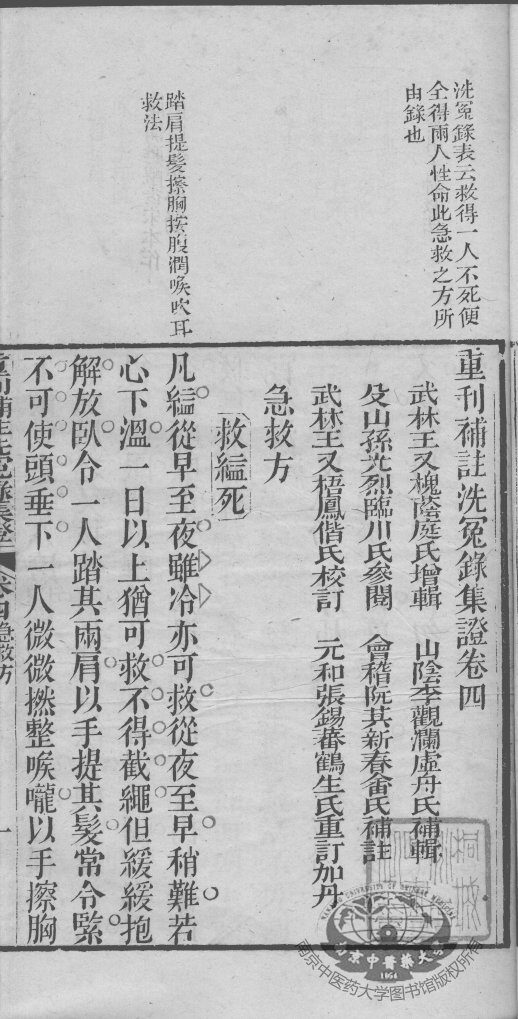 洗冤錄表云救得一人不死便
全得兩人性命此急救之方所
由錄也
踏肩提髮擦胸按腹潤喉吹耳
救法
重刊補註洗冤錄集證卷四
武林王又槐蔭庭氏增輯 山陰李觀瀾虛舟氏補輯
及山孫光烈臨川氏參閱 會稽阮其新春畬氏補註
武林王又梧鳳偕氏校訂 元和張錫蕃鶴生氏重訂加丹
急救方
救縊死
凡縊從早至夜雖冷亦可救從夜至早稍難若
心下溫一日以上猶可救不得截繩但緩緩抱
解放臥令一人踏其兩肩以手提其髮常令緊
不可使頭垂下一人微微撚整喉嚨以手擦胸
重刊補註洗冤錄集證 卷四急救方 一
南京中医药大学图书馆版权所有
南京中醫藥大學
1954